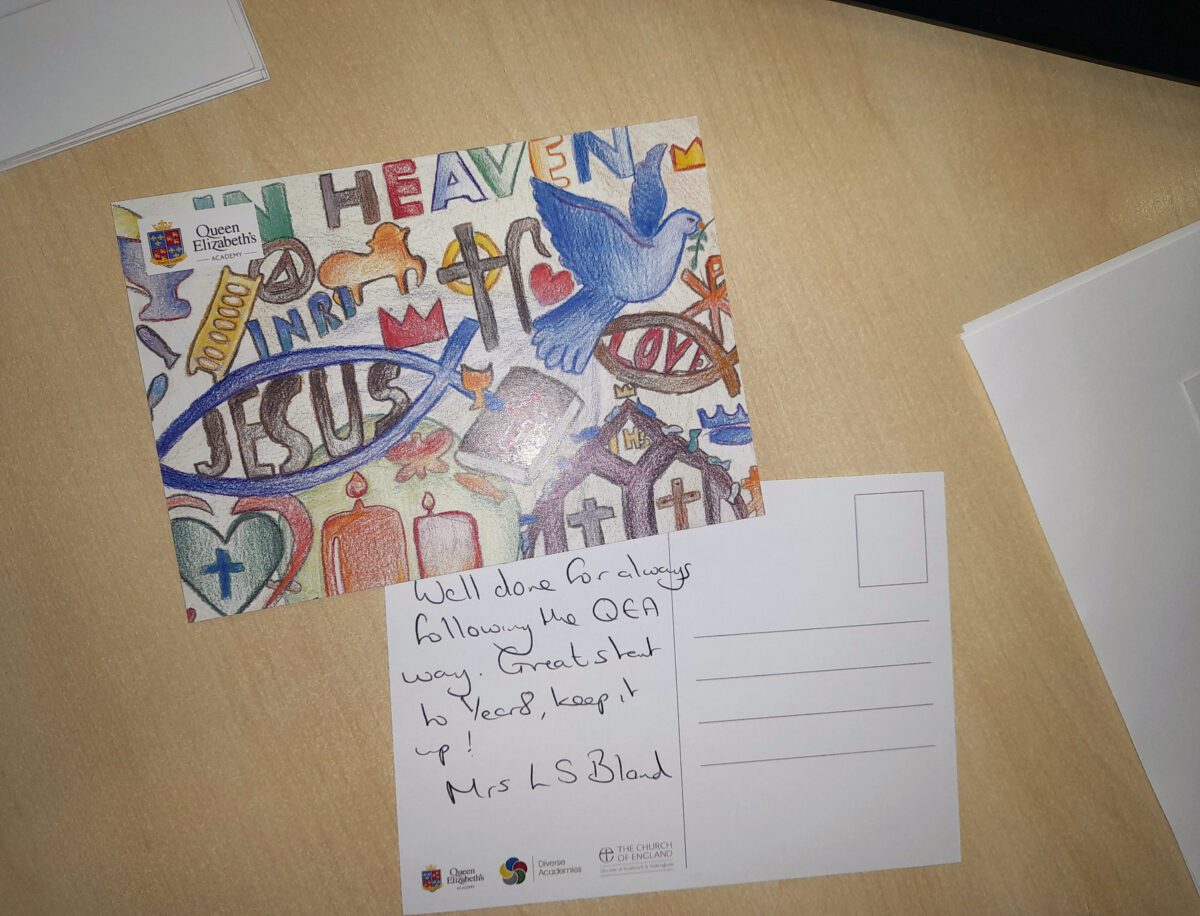 IN HEAVEN
Queen
Elizabeth's
ACADEMY
INRI
JESUS
LOVE
IHS
Well done for always
following the QEA
way. Great start
to Year 8, keep it
up!
Mrs L S Bland
Queen
Elizabeth's
ACADEMY
Diverse
Academies
THE CHURCH
OF ENGLAND
Diocese of Southwell & Nottingham